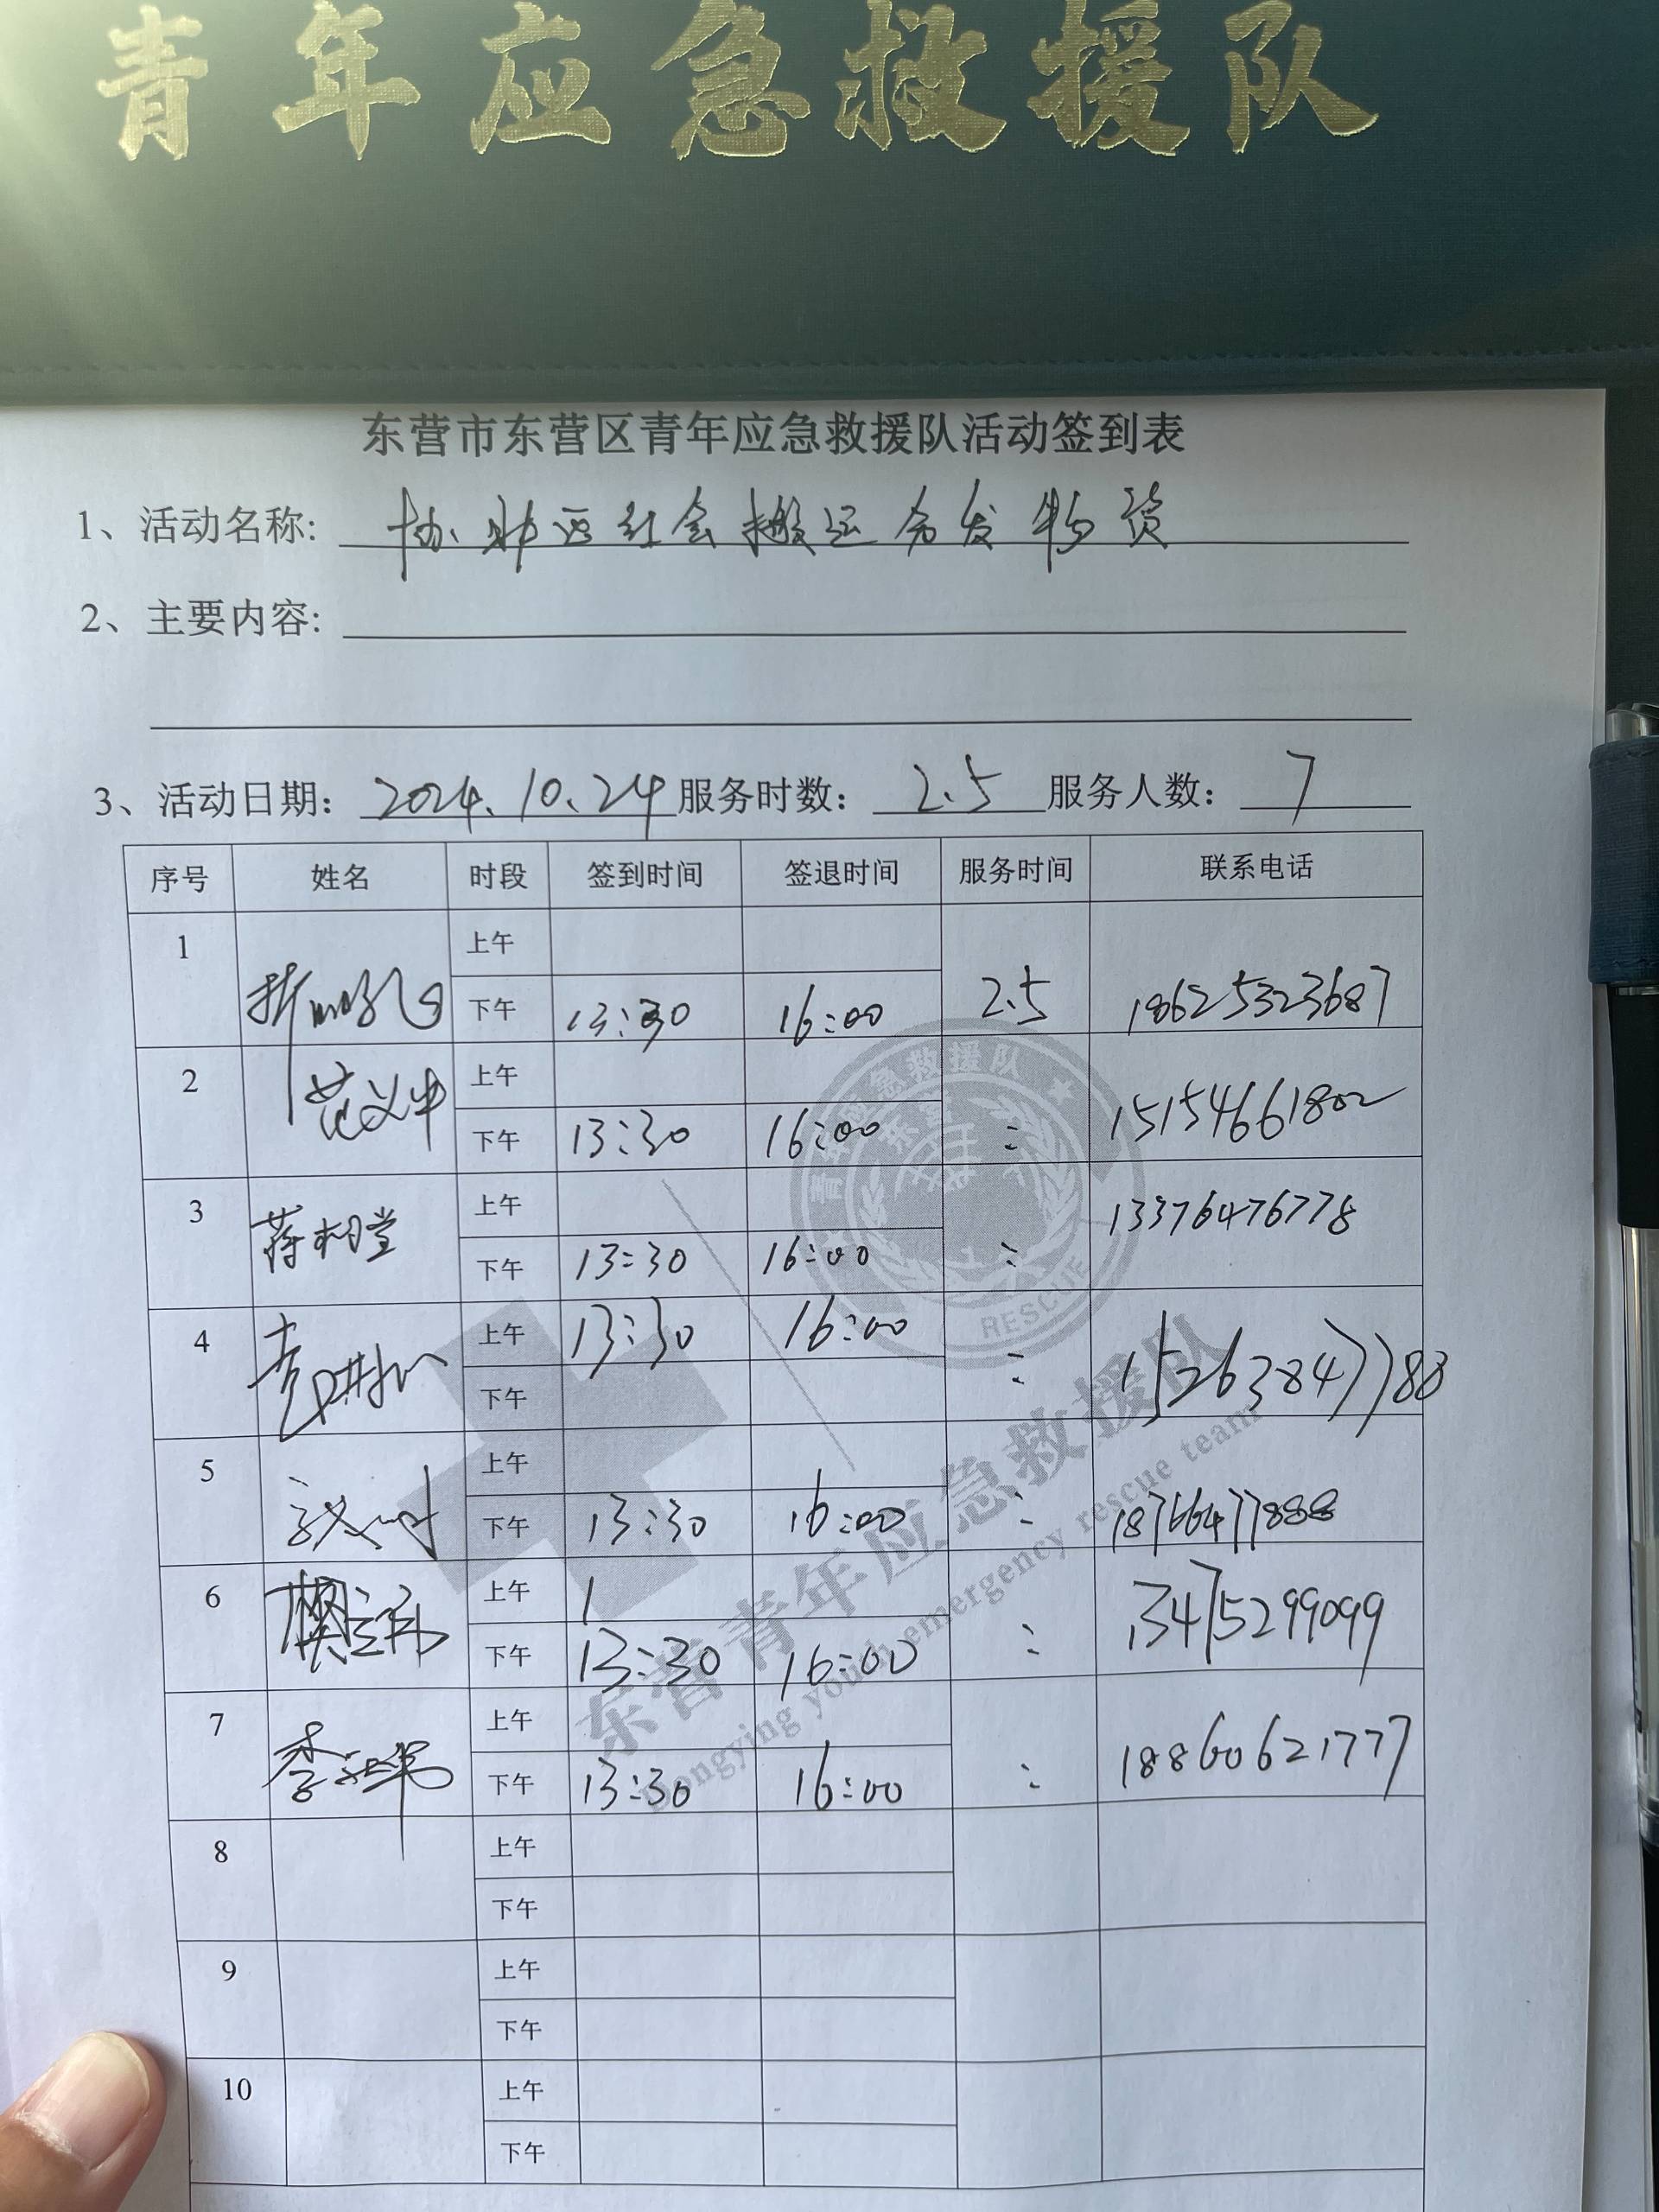 青年应急救援队
东营市东营区青年应急救援队活动签到表
1、活动名称: 协助区社会搬运分发物资
2、主要内容:
3、活动日期: 2024.10.24 服务时数: 2.5 服务人数: 7
序号 姓名 时段 签到时间 签退时间 服务时间 联系电话
1 上午
下午 13:30 16:00 2.5 18625323687
2 范义中 上午
下午 13:30 16:00 : 15154661802
3 蒋相堂 上午 13376476778
下午 13:30 16:00 :
4 上午 13:30 16:00 : 15263847788
下午
5 上午
下午 13:30 16:00 : 18766477888
6 上午 1 13475299099
下午 13:30 16:00 :
7 李 上午
下午 13:30 16:00 : 18860621777
8 上午
下午
9 上午
下午
10 上午
下午
青年应急救援队
东营
RESCUE
东营青年应急救援队
Dongying youth emergency rescue team